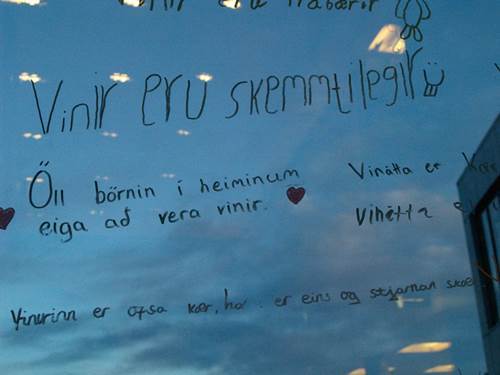 eru frábærir
Vinir eru skemmtilegir
Öll börnin í heiminum
eiga að vera vinir.
Vinátta er
Vinátta
Vinurinn er ofsa kær, er eins og stjarnan